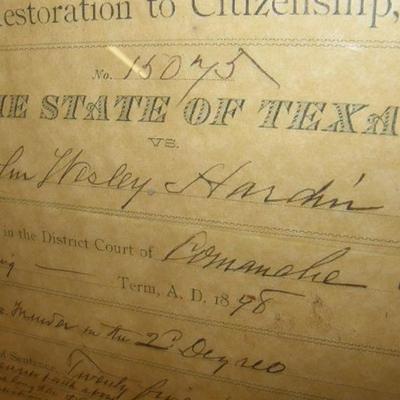 Restoration to Citizenship,
No. 15075
THE STATE OF TEXA
VS.
hn Wesley Hardin
in the District Court of Comanche
Term, A. D. 1878
Murder in the 2d Degree
Sentence, Twenty five